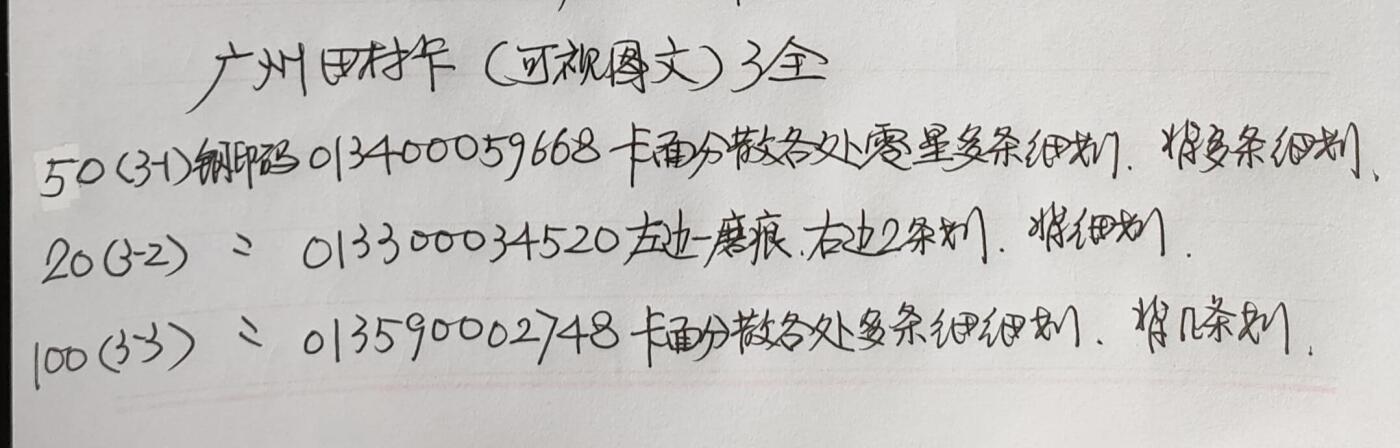 广州田村卡（可视图文）3全
50(3-1)钢印码013400059668卡面分散各处零星多条细划.背多条细划、
20(3-2) 〃 013300034520左边一磨痕、右边2条划.背细划.
100(3-3) 〃 013590002748卡面分散各处多条细细划、背几条划.